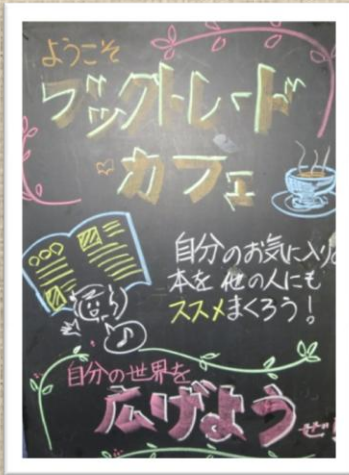 ようこそ
ブックトレード
カフェ
自分のお気に入りの
本を他の人にも
ススメまくろう！
自分の世界を
広げよう
ーぜ！